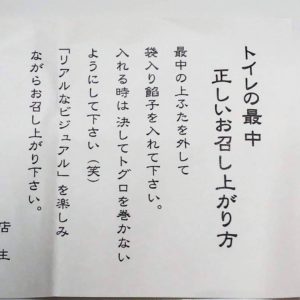 トイレの最中
正しいお召し上がり方
最中の上ふたを外して
袋入り餡子を入れて下さい。
入れる時は決してトグロを巻かない
ようにして下さい（笑）
「リアルなビジュアル」を楽しみ
ながらお召し上がり下さい。
店主